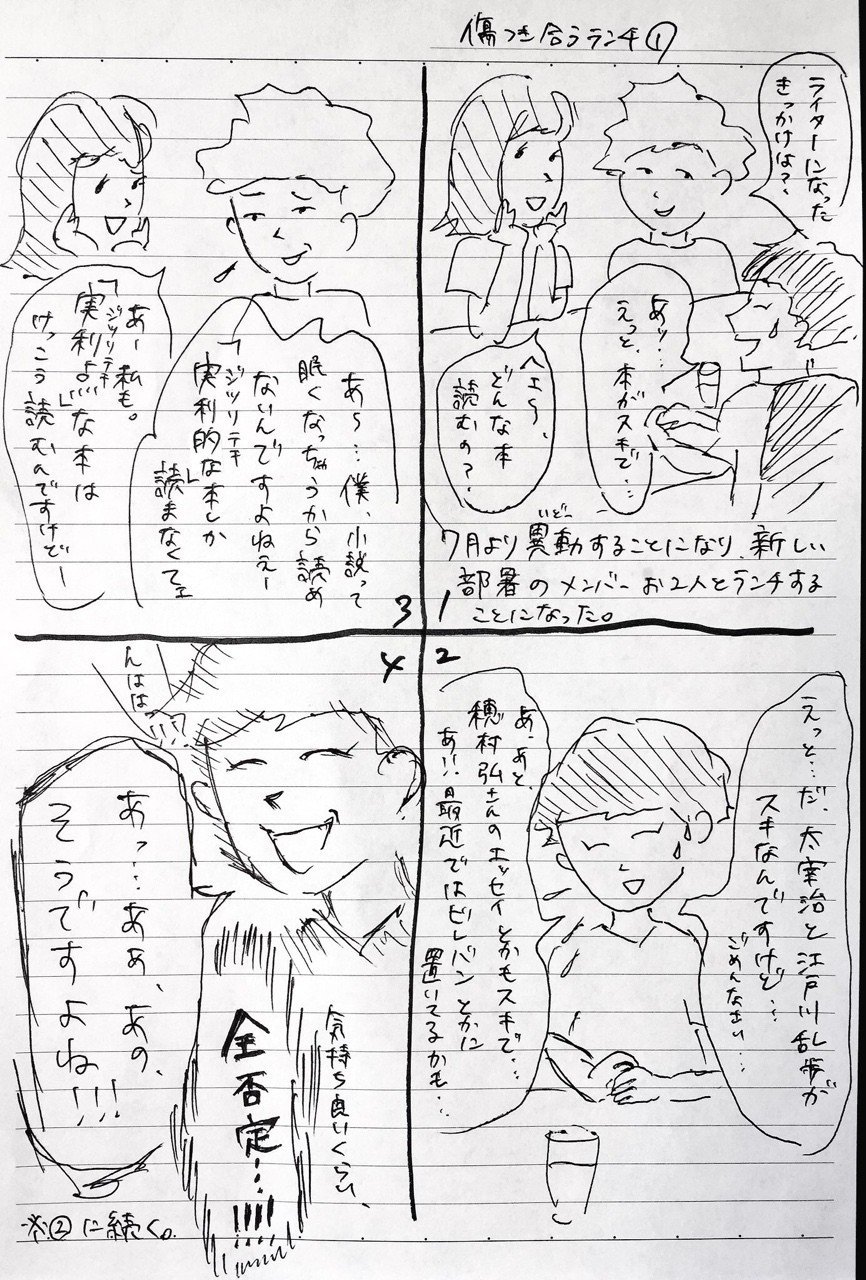 傷つき合うランチ①
ライターになった
きっかけは?
あッ…
えっと、本がスキで…
へエ〜、
どんな本
読むの?
7月より異動することになり、新しい
いどー
部署のメンバーお2人とランチする
ことになった。
1
2
えっと…だ、太宰治と江戸川乱歩が
スキなんですけど…
ごめんなさい…
あ、あと、
穂村弘さんのエッセイとかもスキで…
あ!!最近ではビレバンとかに
置いてるかも…
3
あ〜…僕、小説って
眠くなっちゃうから読め
ないんですよねえー
「実利的な本しか
ジツリテキ
読まなくてェ
あー私も。
「実利よ…」な本は
ジツリテキ
けっこう読むんですけどー
4
気持ち良いくらい、
全否定…!!!!
んはは
!!!
あっ…ああ、あの、
そうですよね!!!
※②に続く。